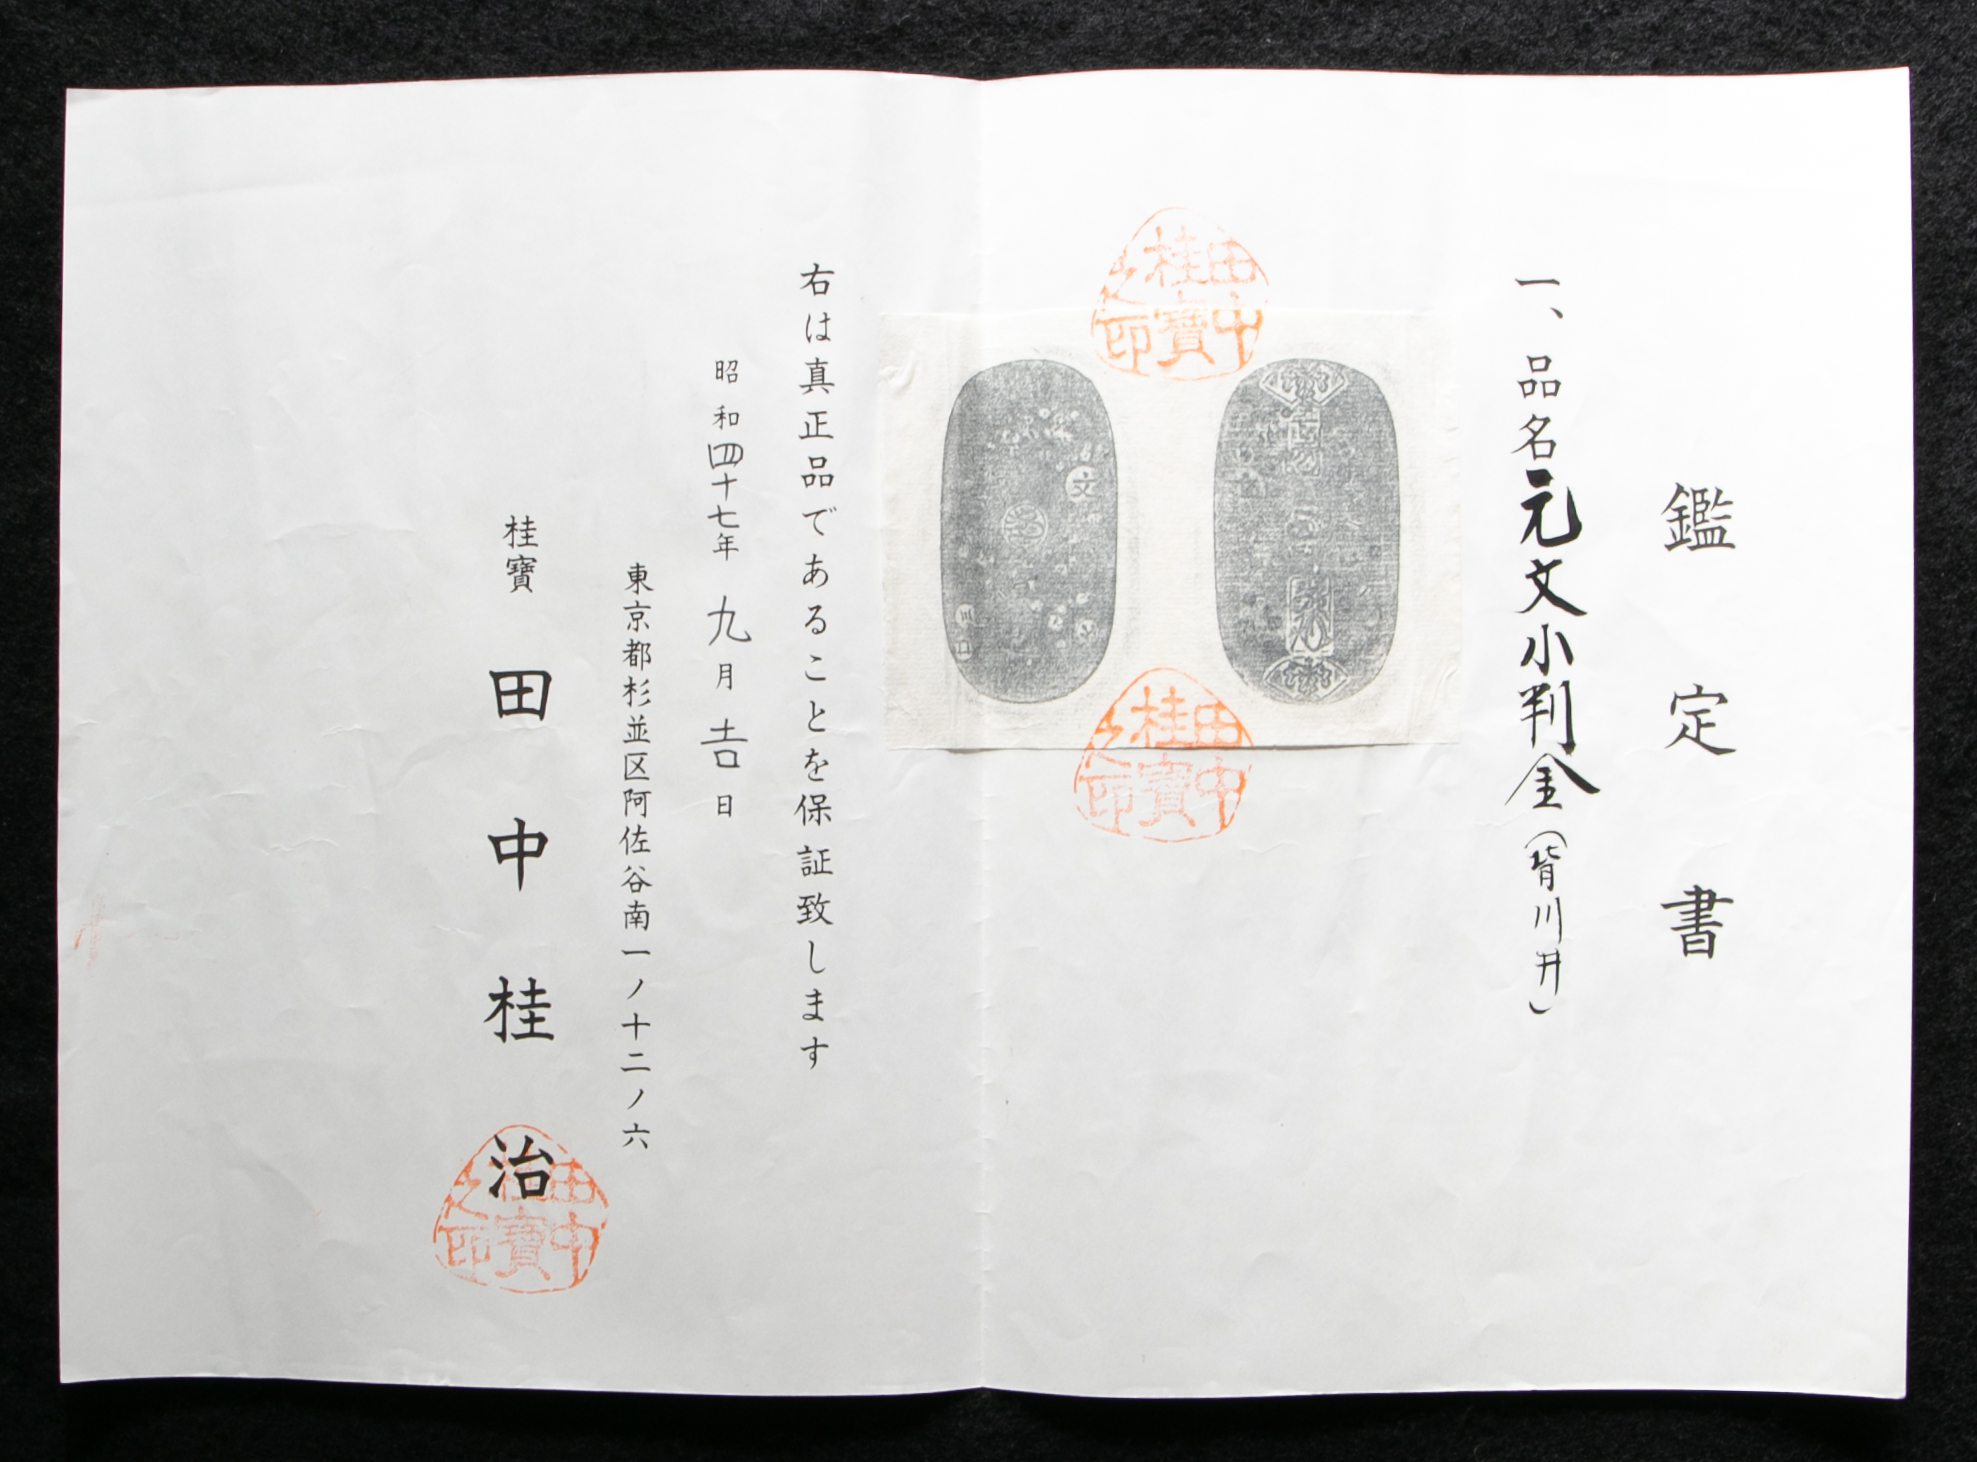 鑑定書
一、品名元文小判金(背川井)
田中
桂寶
之印
文
田中
桂寶
之印
右は真正品であることを保証致します
昭和四十七年九月吉日
東京都杉並区阿佐谷南一ノ十二ノ六
桂寶 田中桂治
田中
桂寶
之印